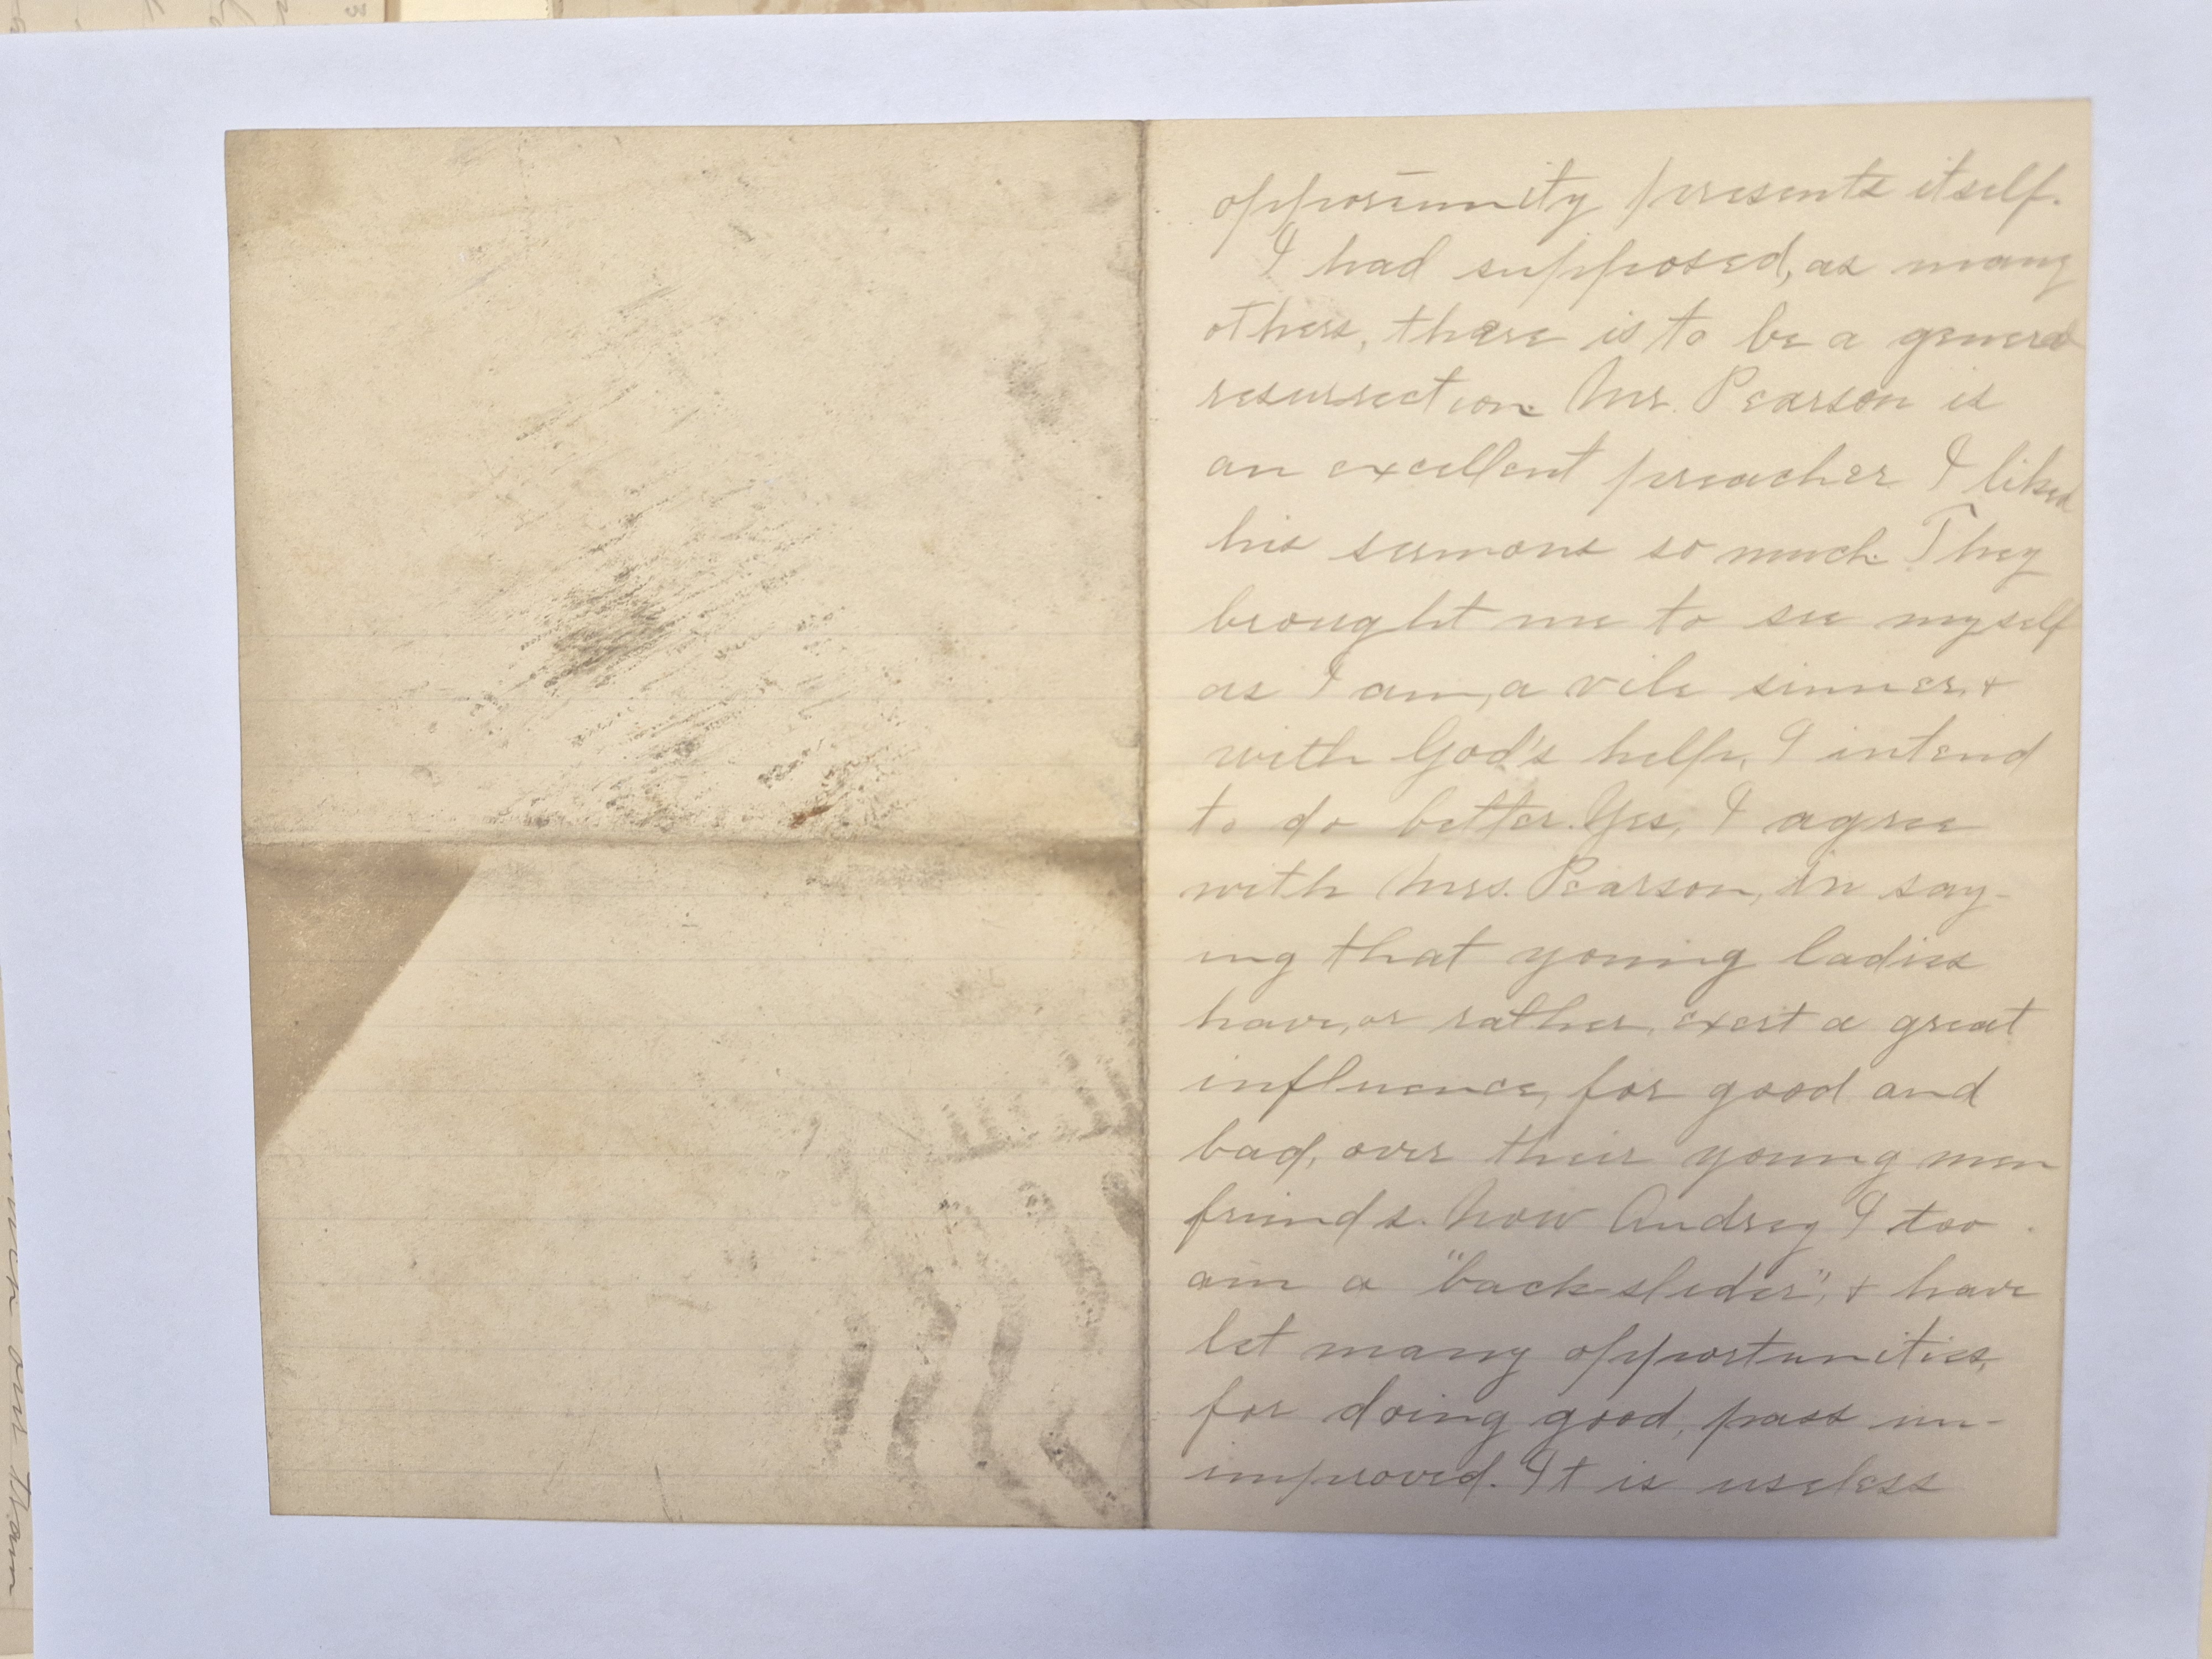 opportunity presents itself.
I had supposed, as many
others, there is to be a general
resurrection. Mr. Pearson is
an excellent preacher. I liked
his sermons so much. They
brought me to see myself
as I am, a vile sinner, +
with God's help, I intend
to do better. Yes, I agree
with Mrs. Pearson, in say-
ing that young ladies
have, or rather, exert a great
influence, for good and
bad, over their young men
friends. Now Audrey I too
am a "back-slider", + have
let many opportunities,
for doing good, pass un-
improved. It is useless